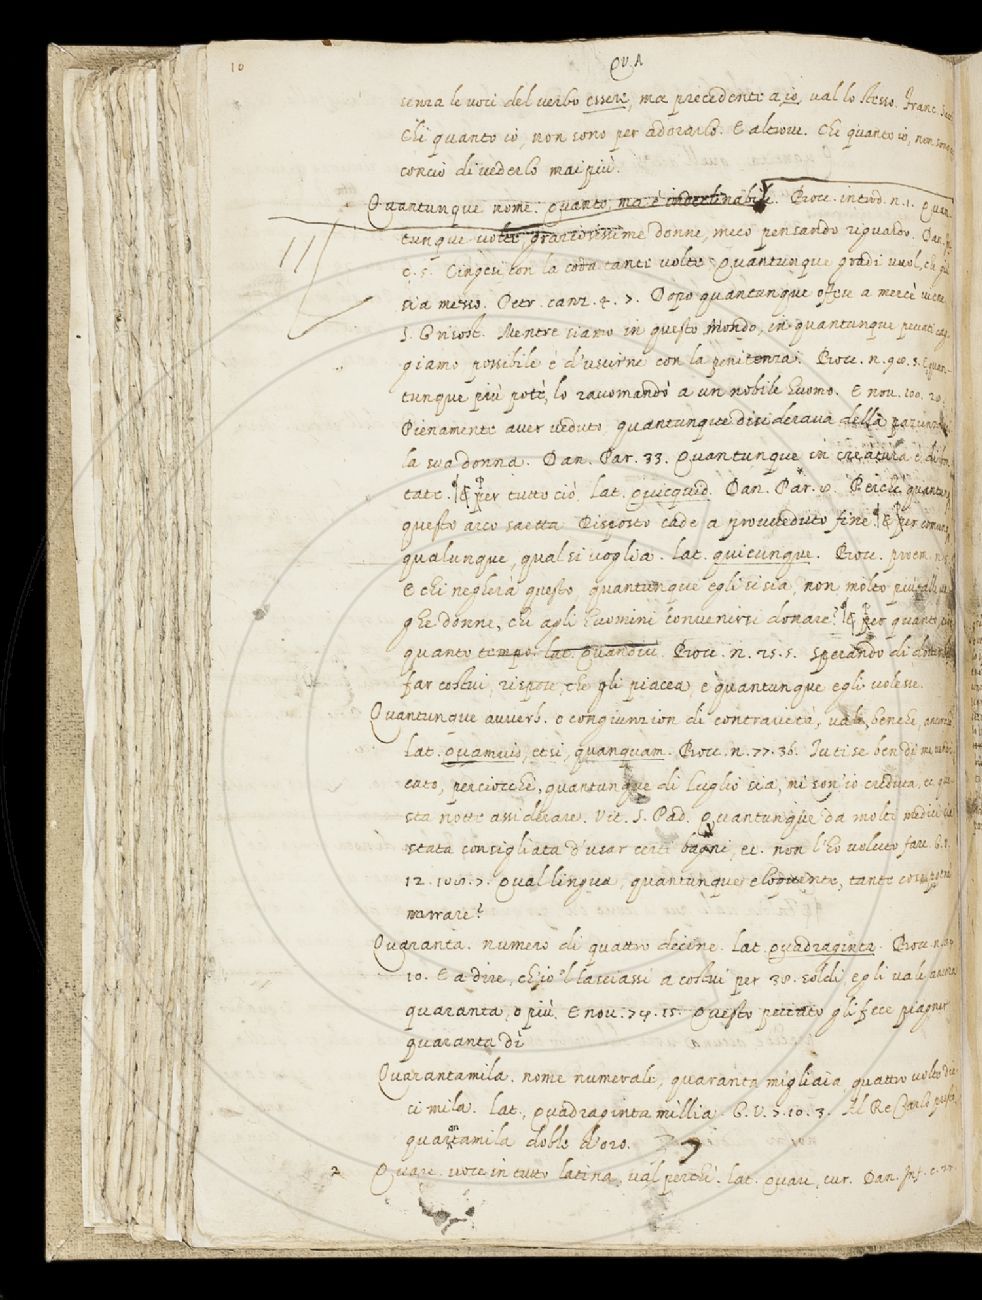 10
QVA
senza le voci del verbo essere, ma precedente a, io, val lo stesso. Franc. Sac
Chi quanto io, non sono per adorarlo. E altrove. Chi quanto io, non sono
concio di vederlo mai più.
Quantunque nome. quanto, ma è indeclinabile. Bocc. introd. n. 1. Quan
tunque volte, graziosissime donne, meco pensando riguardo. Dan.
c. 5. Cignesi con la coda tante volte, Quantunque gradi vuol, che giù
sia messo. Petr. canz. 4. 7. Dopo quantunque offese a mercè viene.
S. Grisost. Mentre siamo in questo Mondo, in quantunque peccati cag
giamo possibile è d'uscirne con la penitenza. Bocc. n. 98. 3. E quan-
tunque più potè, lo racomandò a un nobile huomo. E nov. 100. 20.
Pienamente aver veduto quantunque disiderava della pazienza
la sua donna. Dan. Par. 33. Quantunque in creatura è di bon
tate. ¶ & per tutto ciò. lat. quicquid. Dan. Par. 8. Perchè quantunq
questo arco saetta Disposto cade a proveduto fine. ¶ & per comunq
qualunque, qual si voglia. lat. quicunque. Bocc. proem. n. 5
E chi negherà questo, quantunque egli si sia, non molto più alle va
ghe donne, che agli huomini convenirsi donare? ¶ & per quanto
quanto tempo. lat. quandiu. Bocc. n. 25. 5. Sperando di dover
far costui, rispose, che gli piacea, e quantunque egli volesse.
Quantunque avverb. e congiunzion di contrarietà, vale, benche, ancorche
lat. quamvis, etsi, quanquam. Bocc. n. 77. 36. Tu ti se ben di me vendi
cato, perciocchè, quantunque di Luglio sia, mi son io creduta
sta notte assiderare. Vit. S. Pad. Quantunque da molti medici sia
stata consigliata d'usar certi bagni, ec. non l'ho voluto fare. G. V.
12. 108. 7. Qual lingua, quantunque eloquente, tante
narrare?
Quaranta. numero di quattro decine. lat. quadraginta. Bocc. n.
10. E a dire, ch'io 'l lasciassi a costui per 30. soldi, egli vale ancora
quaranta, o più. E nov. 74. 15. Questo peccato gli fece piagner
quaranta dì
Quarantamila. nome numerale, quaranta migliaia quattro volte die
ci mila. lat. quadraginta millia. G. V. 7. 10. 3. Al Re Carlo
quarantamila doble d'oro.
2 Quare. voce in tutto latina, val perchè. lat. quare, cur. Dan. Inf. c. 27.